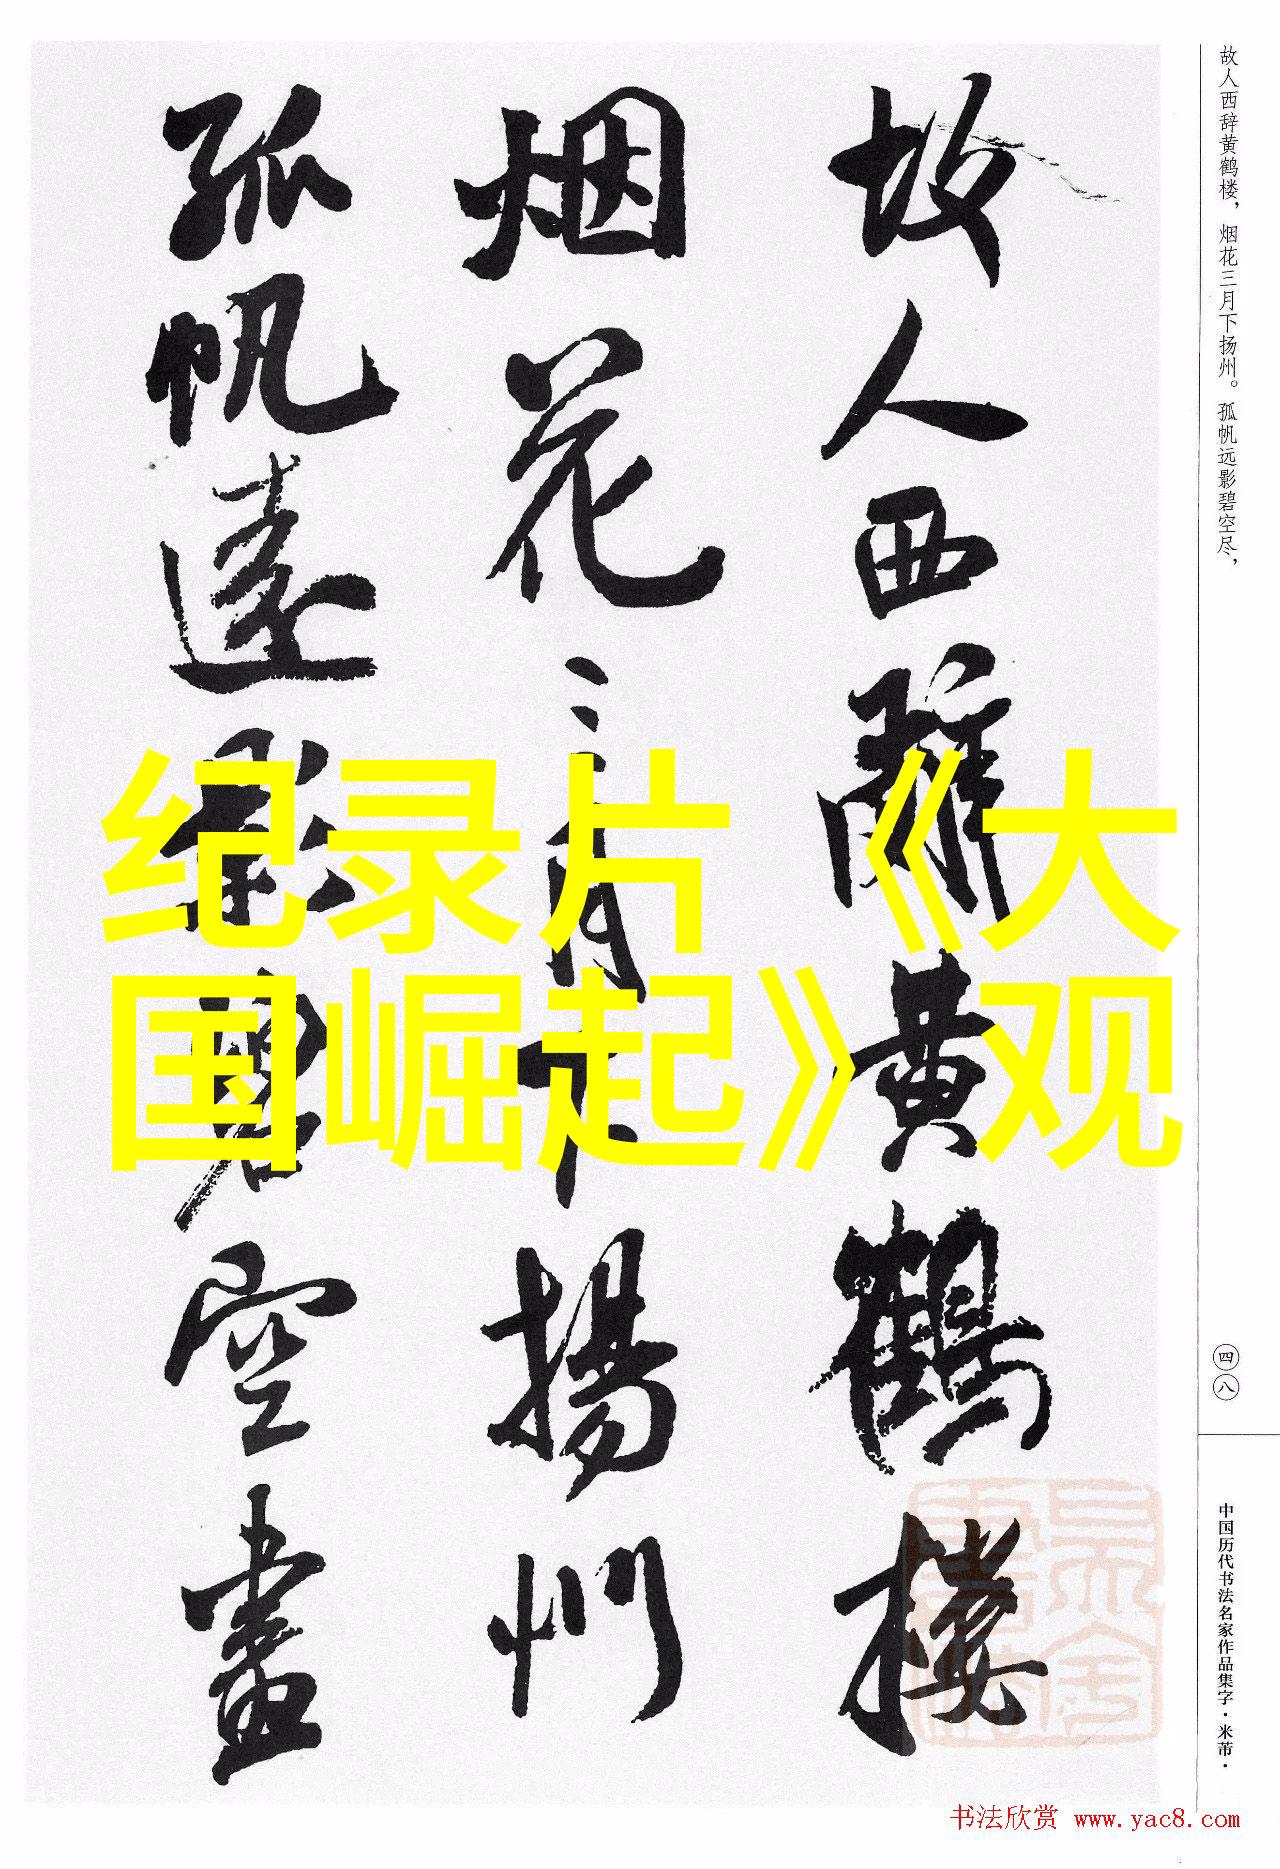 故人西辞黄鹤楼，烟花三月下扬州。孤帆远影碧空尽，
故人西辭黄鶴楼
烟花三月下揚州
孤帆遠影碧空盡
纪录片《大
国崛起》观
四八
中国历代书法名家作品集字·米芾·
书法欣赏 www.yac8.com